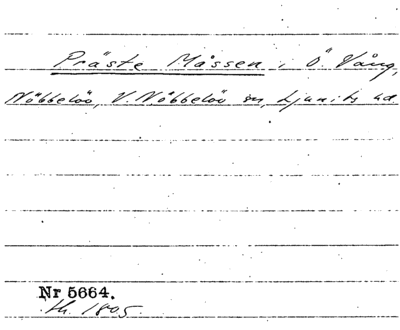 Präste Måssen, i Ö. Vång,
Nöbbelöv, V. Nöbbelöv sn, Ljunits hd
Nr 5664.
sk. 1805.